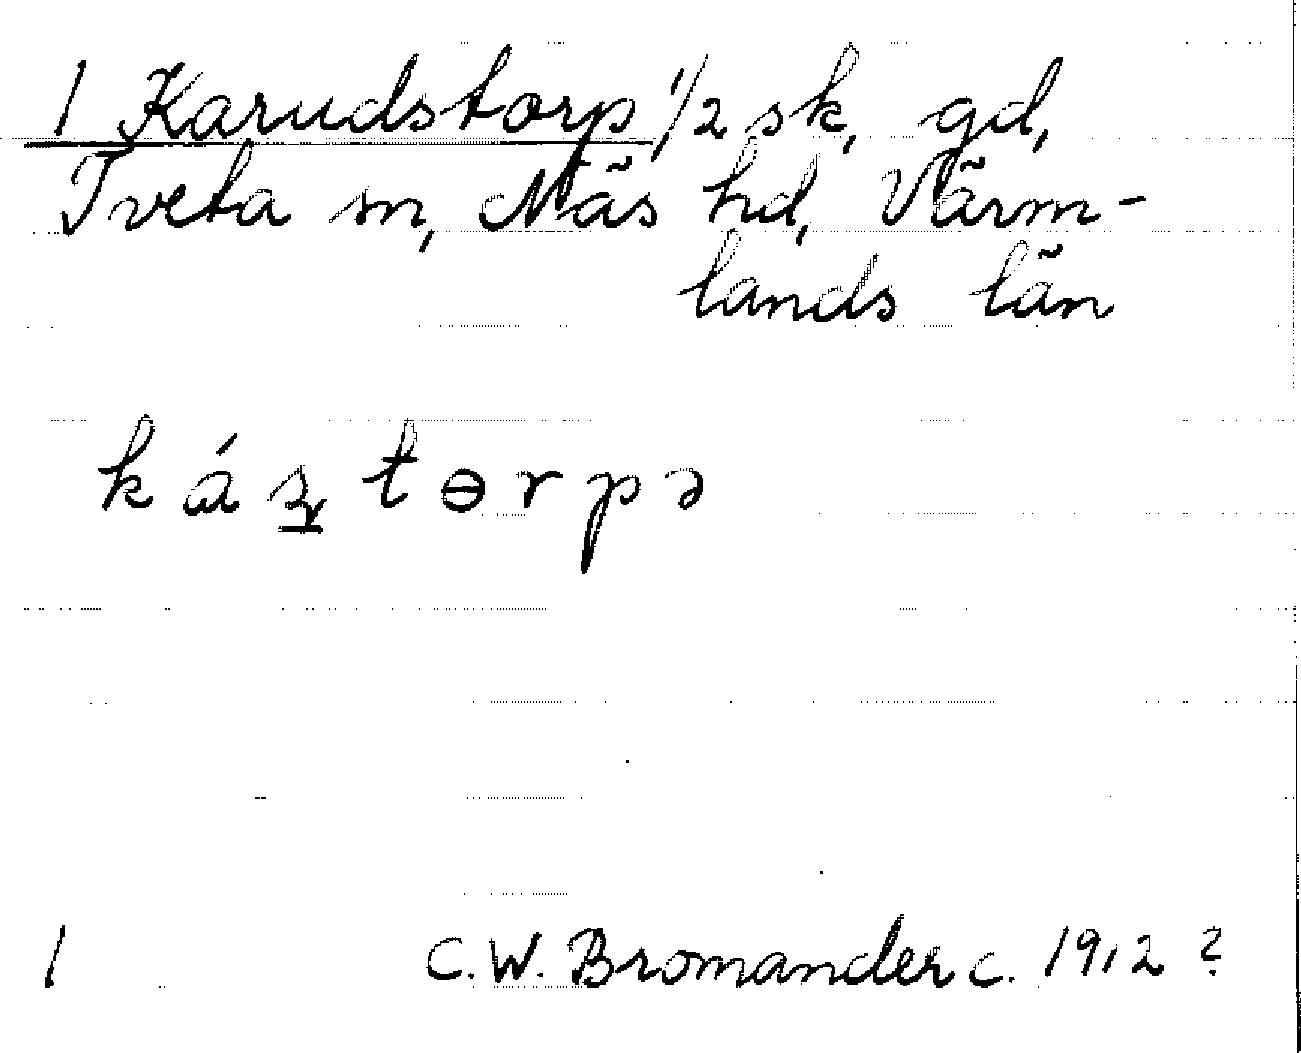 1 Karudstorp, 1/2 sk, gd,
Tveta sn, Näs hd, Värm-
lands län
kás̠tɵrpə
1 C.W. Bromander c. 1912?